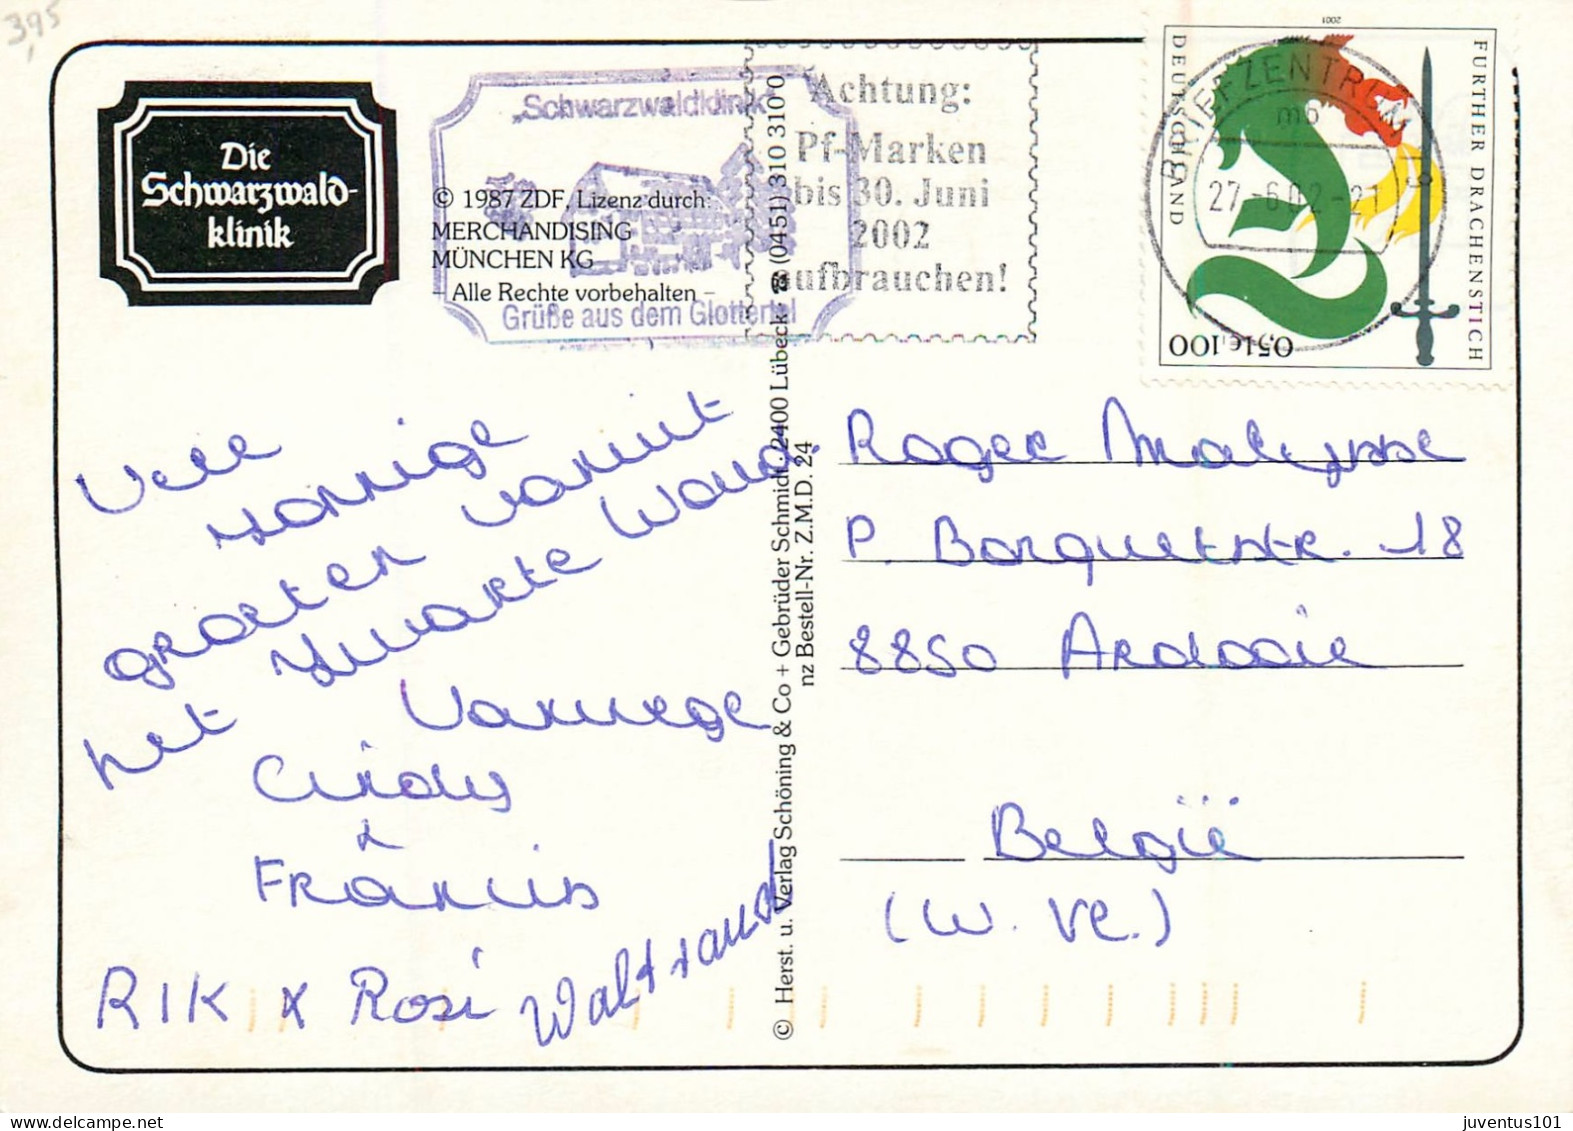 3,95
Die
Schwarzwald-
klinik
„Schwarzwaldklinik"
Grüße aus dem Glottertal
© 1987 ZDF, Lizenz durch:
MERCHANDISING
MÜNCHEN KG
– Alle Rechte vorbehalten –
Achtung:
Pf-Marken
bis 30. Juni
2002
aufbrauchen!
BRIEFZENTRUM
27.-6.02-21
2001
DEUTSCHLAND
FURTHER DRACHENSTICH
100 0,51€
Vele
zonnige
groeten vanuit
het Zwarte Woud.
Vanwege
Cindy
&
Francis
RIK & Rosi Waltraud
© Herst. u. Verlag Schöning & Co + Gebrüder Schmidt, 2400 Lübeck · ☎ (0451) 310 310 0
nz Bestell-Nr. Z.M.D. 24
Roger Malysse
P. Baquetstr. 18
8850 Ardooie
België
(W. Vl.)
www.delcampe.net
juventus101